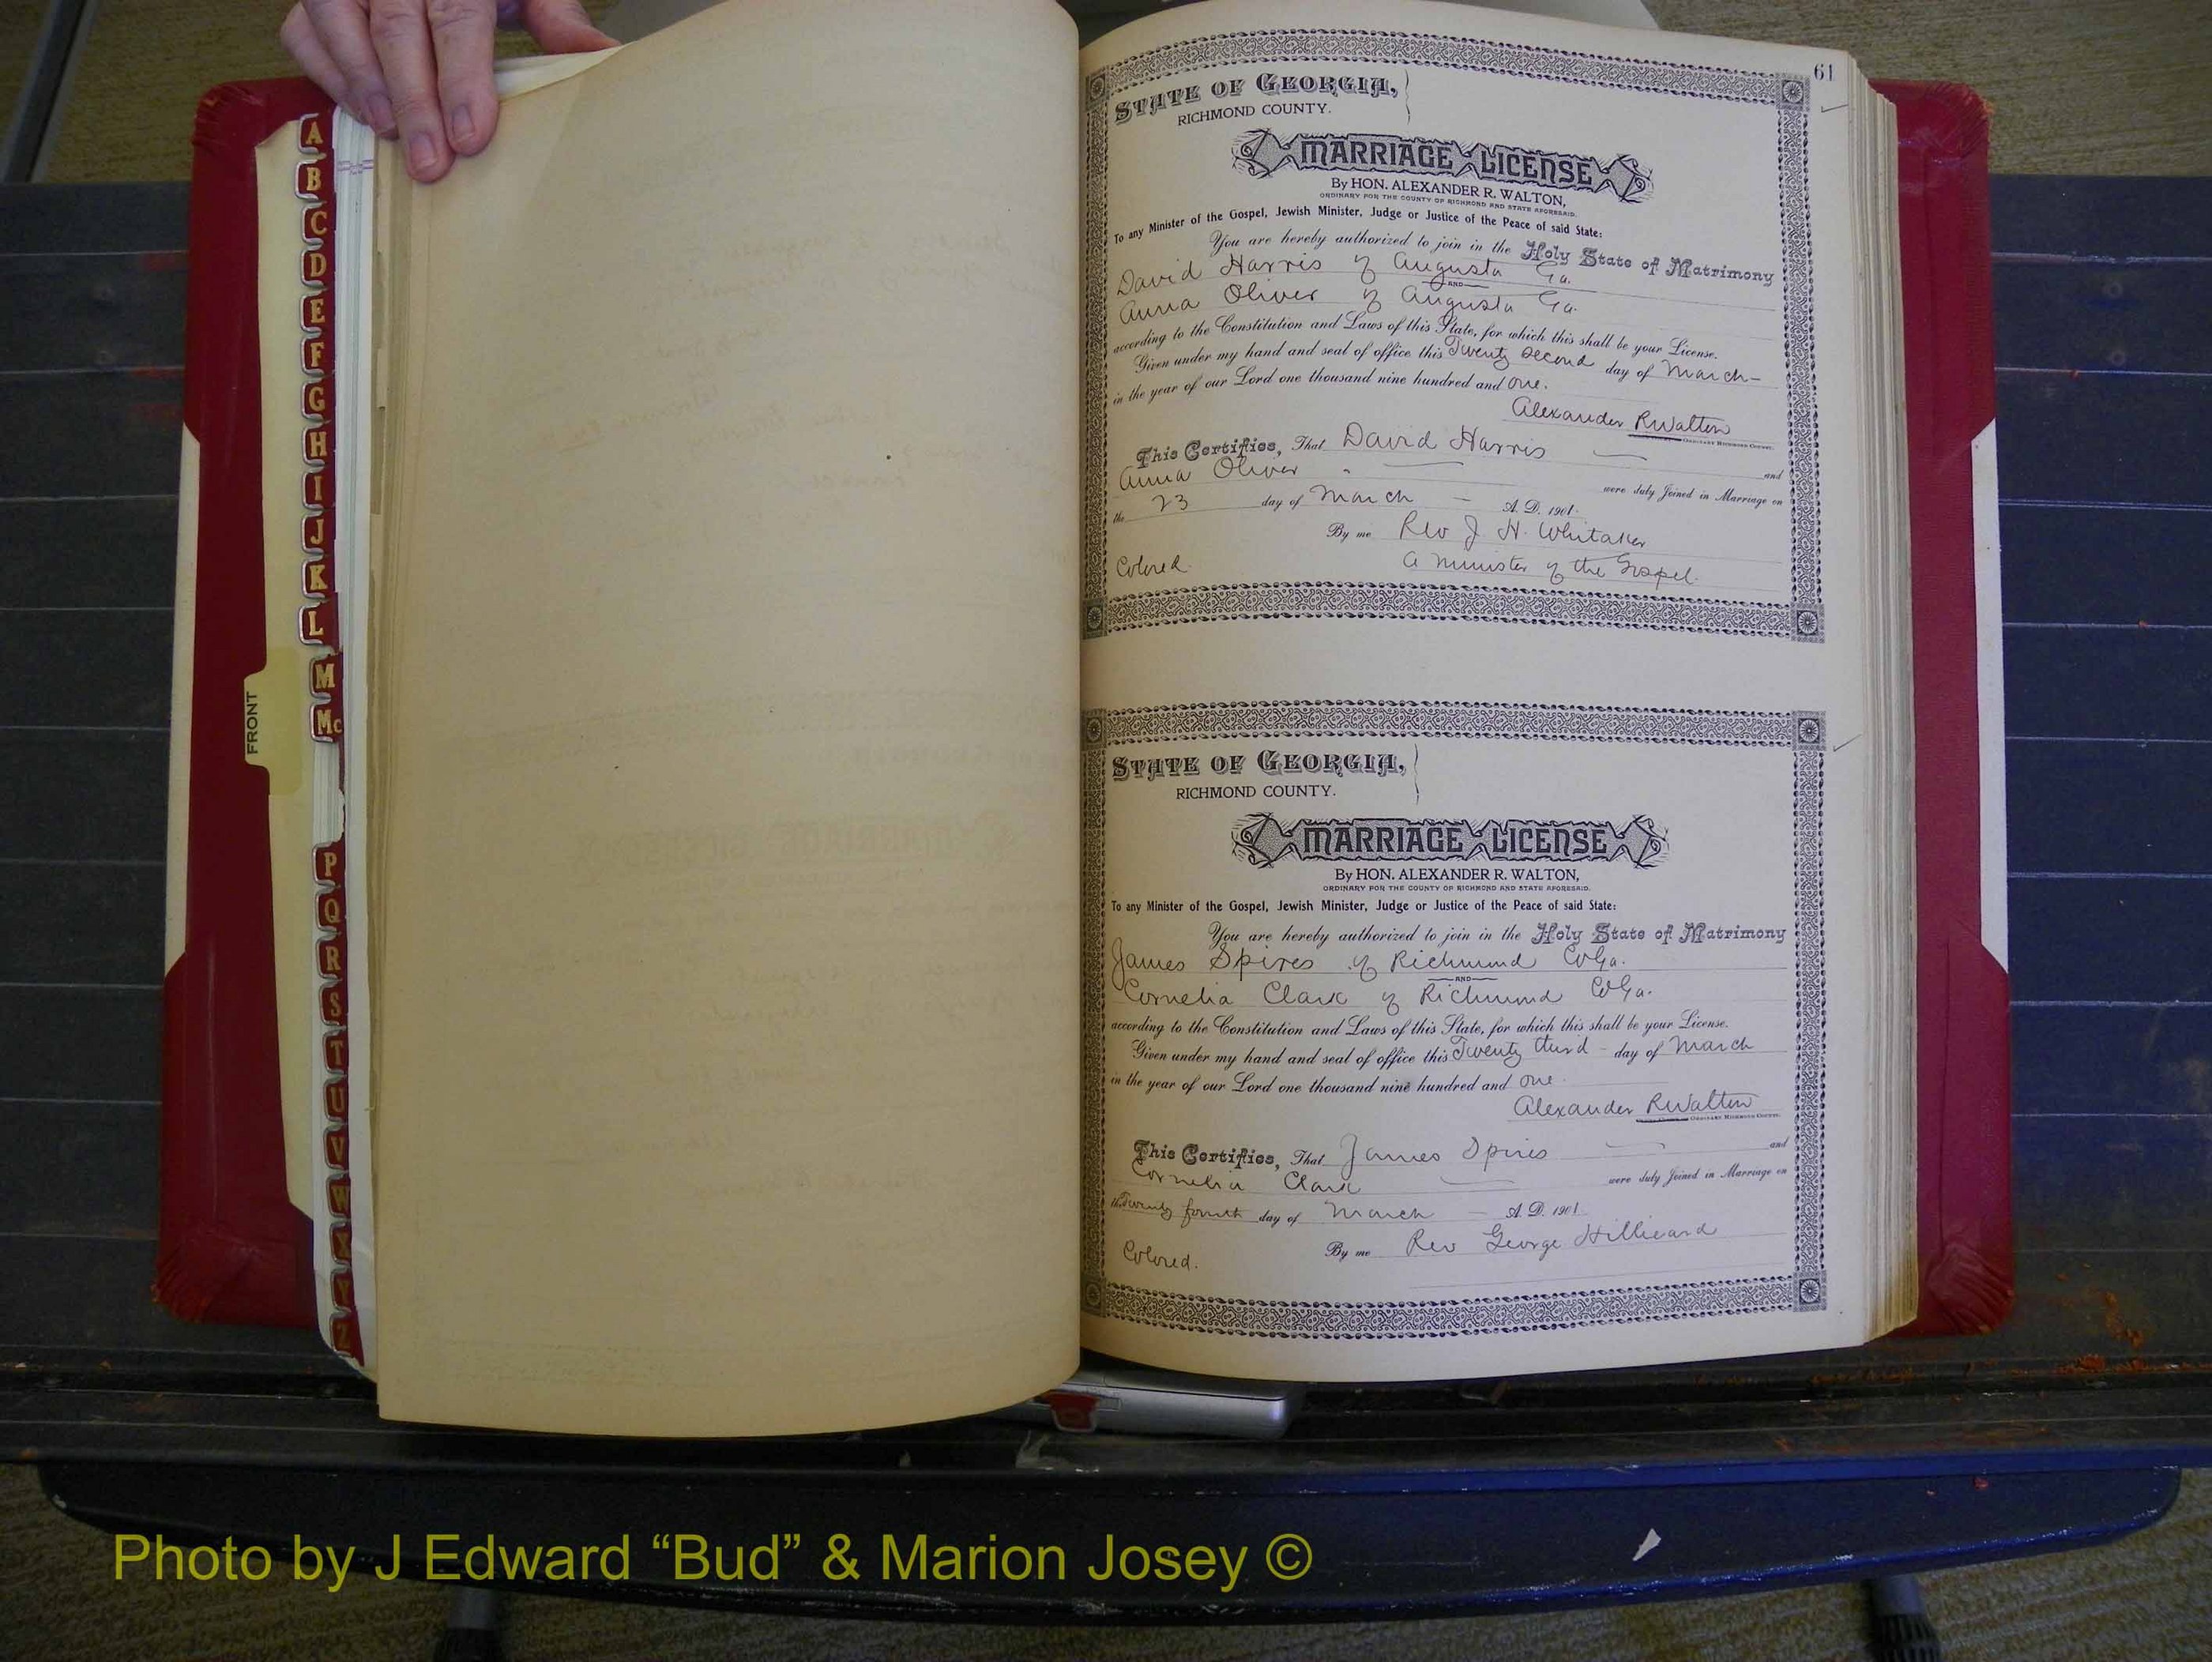 A
B
C
D
E
F
G
H
I
J
K
L
M
Mc
P
Q
R
S
T
U
V
W
X
Y
Z
FRONT
61
STATE OF GEORGIA,
RICHMOND COUNTY.
MARRIAGE LICENSE
By HON. ALEXANDER R. WALTON,
ORDINARY FOR THE COUNTY OF RICHMOND AND STATE AFORESAID.
To any Minister of the Gospel, Jewish Minister, Judge or Justice of the Peace of said State:
You are hereby authorized to join in the Holy State of Matrimony
David Harris of Augusta Ga.
AND
Anna Oliver of Augusta Ga.
according to the Constitution and Laws of this State, for which this shall be your License.
Given under my hand and seal of office this Twenty second day of March
in the year of our Lord one thousand nine hundred and one.
Alexander R Walton
ORDINARY RICHMOND COUNTY.
This Certifies, That David Harris and
Anna Oliver were duly Joined in Marriage on
the 23 day of March A. D. 1901.
By me Rev J. H. Whitaker
Colored. a minister of the Gospel.
STATE OF GEORGIA,
RICHMOND COUNTY.
MARRIAGE LICENSE
By HON. ALEXANDER R. WALTON,
ORDINARY FOR THE COUNTY OF RICHMOND AND STATE AFORESAID.
To any Minister of the Gospel, Jewish Minister, Judge or Justice of the Peace of said State:
You are hereby authorized to join in the Holy State of Matrimony
James Spires of Richmond Co Ga.
AND
Cornelia Clark of Richmond Co Ga.
according to the Constitution and Laws of this State, for which this shall be your License.
Given under my hand and seal of office this Twenty third day of March
in the year of our Lord one thousand nine hundred and one
Alexander R Walton
ORDINARY RICHMOND COUNTY.
This Certifies, That James Spires and
Cornelia Clark were duly Joined in Marriage on
the Twenty fourth day of March A. D. 1901.
By me Rev George Hilliard
Colored.
Photo by J Edward “Bud” & Marion Josey ©